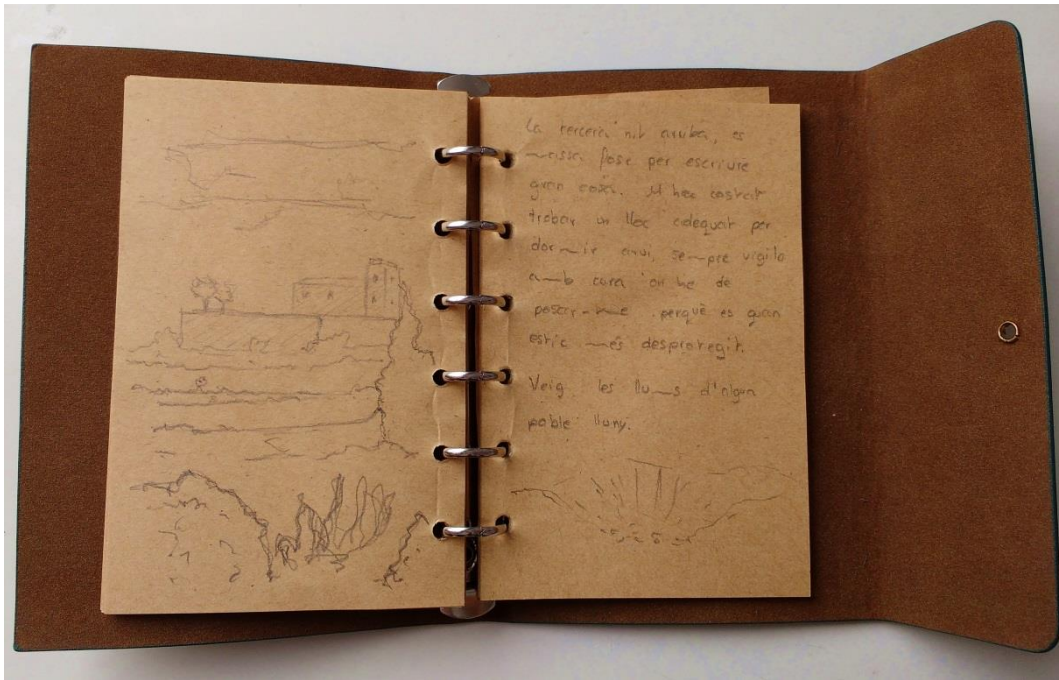 La tercera nit arriba, es
massa fosc per escriure
gran cosa. M'hea costat
trobar un lloc adequat per
dormir avui, sempre vigilo
amb cura on he de
posar-me perquè es quan
estic més desprotegit.
Veig les llums d'algun
poble lluny.